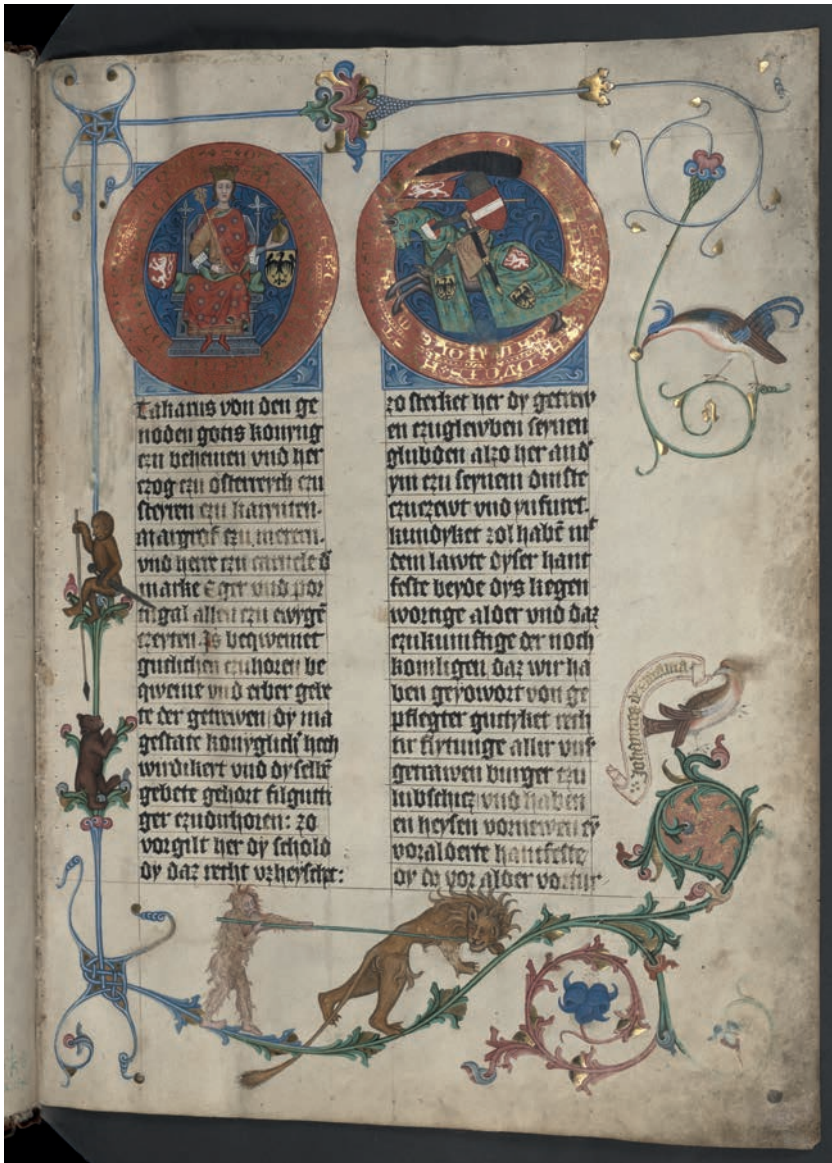 von den ge
noden gotis konnig
czu behemen vnd her
czog czu osterreych czu
steyren czu karnten.
margrof czu meren.
vnd herre czu
marke Eger vnd por
tugal allen czu ewygē
czeyten. Is beqwemet
gutlichen czuhoren be
qweme vnd erber gebe
te der getrewen dy ma
gestate konyglich hech
wirdikert vnd dyselbē
gebete gehort
ger czuduhoren: zo
vorgilt her dy schold
dy daz recht vzheyschet:
zo sterket her dy getrew
en czuglewben seynen
glubden alzo her and'
ym czu seynem dinste
czuczewt vnd ynfuret.
kundyket zol habē mit
dem lawte dyser hant
feste beyde dys kegen
wortige alder vnd daz
czukumftige der noch
komligen daz wir ha
ben geyowort von ge
pflegter gutyket rech
tir flytunge allir vns'
getrawen burger czu
lubschicz vnd haben
en heysen vornewen ey
voralderte hantfeste
dy do vor alder
Johannes de